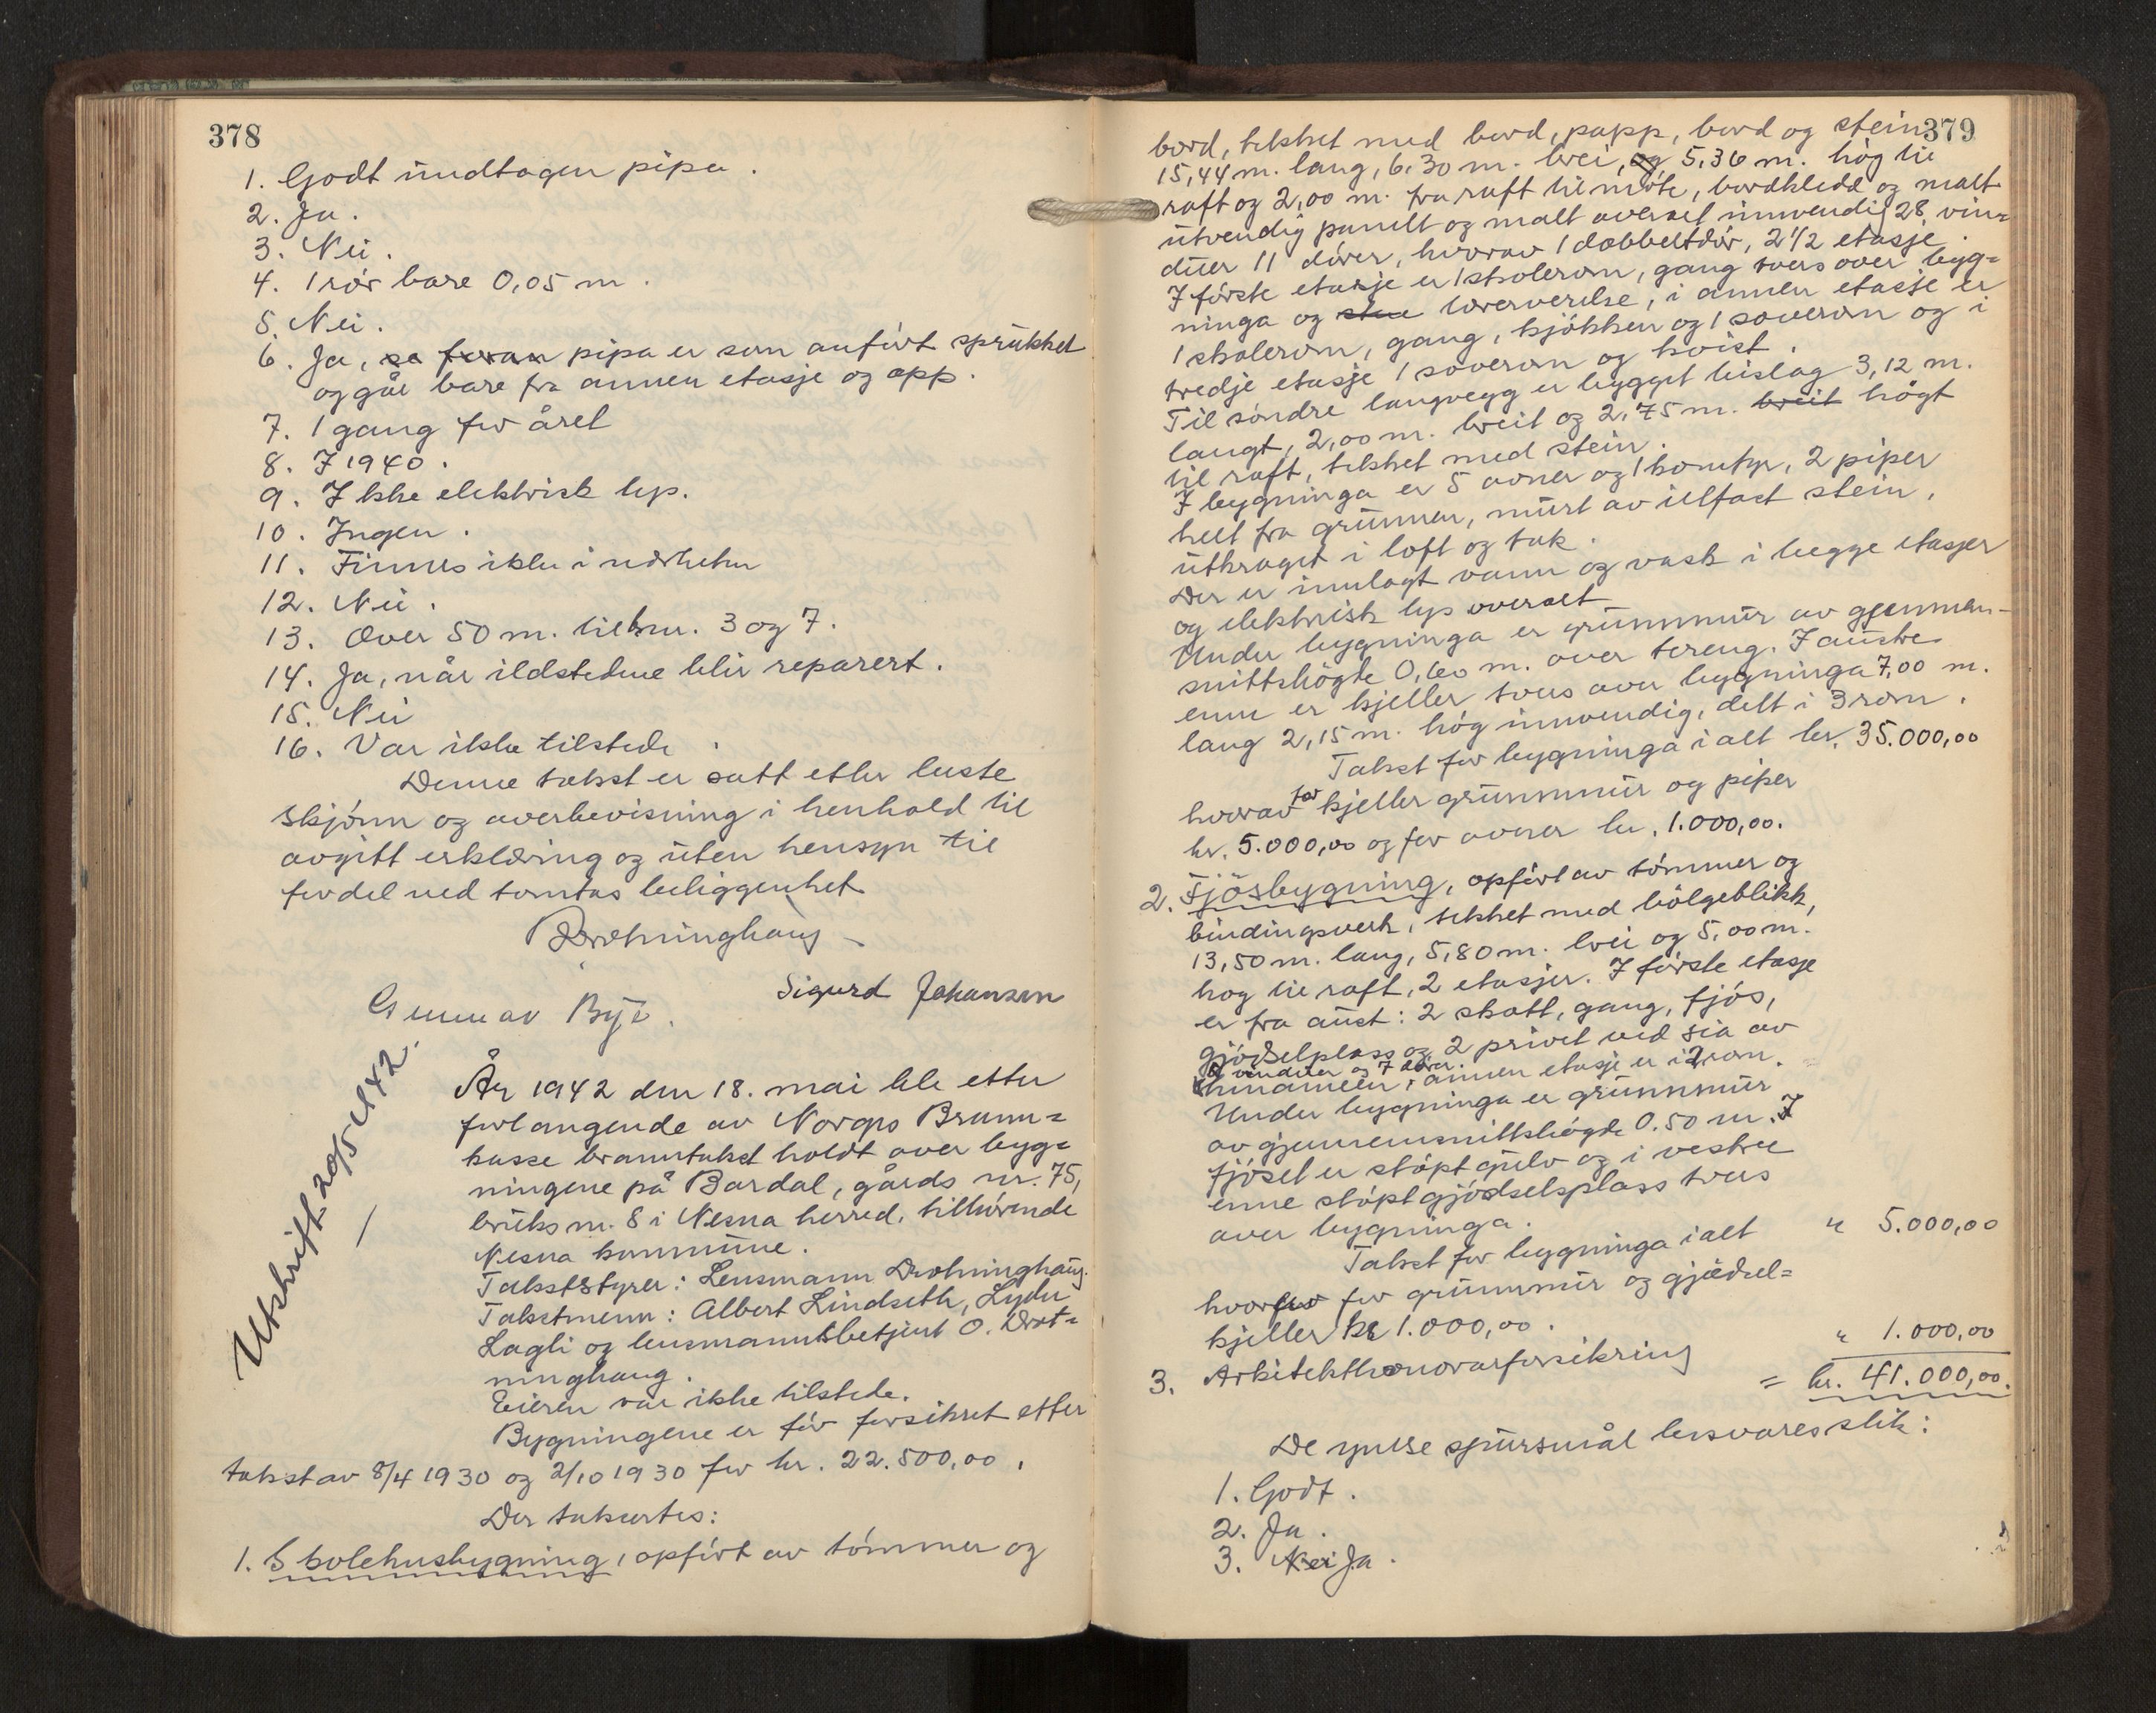 378
1. Godt undtagen pipa.
2. Ja.
3. Nei.
4. 1 rör bare 0,05 m.
5. Nei.
6. Ja, se foran pipa er som anfört sprukket
og går bare fra annen etasje og opp.
7. 1 gang for året
8. I 1940.
9. Ikke elektrisk lys.
10. Ingen.
11. Finnes ikke i nærheten
12. Nei.
13. Over 50 m. til brnr. 3 og 7.
14. Ja, når ildstedene blir reparert.
15. Nei
16. Var ikke tilstede.
Denne takst er satt etter beste
skjönn og overbevisning i henhold til
avgitt erklæring og uten hensyn til
fordel ved tomtas beliggenhet
Drotninghaug
Sigurd Johansen
Gunnar Bye.
Utskrift 20/5 1942.
År 1942 den 18. mai ble etter
forlangende av Norges Brann=
kasse branntakst holdt over byg=
ningene på Bardal, gårds nr. 75,
bruks nr. 8 i Nesna herred, tilhörende
Nesna kommune.
Takststyrer: Lensmann Drotninghaug.
Takstmenn: Albert Lindseth, Lyder
Lagli og lensmannsbetjent O. Drot=
ninghaug.
Eieren var ikke tilstede.
Bygningene er för forsikret etter
takst av 8/4 1930 og 2/10 1930 for kr. 22.500,00.
Der taksertes:
1. Skolehusbygning, opfört av tömmer og
379
bord, tekket med bord, papp, bord og stein
15,44 m. lang, 6,30 m. brei, og 5,36 m. hög til
raft og 2,00 m. fra raft til möte, bordkledd og malt
utvendig panelt og malt overalt innvendig 28 vin=
duer 11 dörer, hvorav 1 dobbeltdör, 2 1/2 etasje.
I förste etasje er 1 skolerom, gang tvers over byg=
ninga og stue lærerverelse, i annen etasje er
1 skolerom, gang, kjökken og 1 soverom og i
tredje etasje 1 soverom og kvist.
Til söndre langvegg er bygget bislag 3,12 m.
langt, 2,00 m. breit og 2,75 m. breit högt
til raft, tekket med stein.
I bygninga er 5 ovner og 1 komfyr, 2 piper
helt fra grunnen, murt av ildfast stein,
utkraget i loft og tak.
Der er innlagt vann og vask i begge etasjer
og elektrisk lys overalt
Under bygninga er grunnmur av gjennom-
snittshögde 0,60 m. over tereng. I austre
enne er kjeller tvers over bygninga 7,00 m.
lang 2,15 m. hög innvendig, delt i 3 rom.
Takst for bygninga i alt kr. 35.000,00
hvorav for kjeller grunnmur og piper
kr. 5.000,00 og for ovner kr. 1.000,00.
2. Fjösbygning, opfört av tömmer og
bindingsverk, tekket med bölgeblikk,
13,50 m. lang, 5,80 m. brei og 5,00 m.
hög til raft, 2 etasjer. I förste etasje
er fra aust: 2 skott, gang, fjös,
gjödselplass og 2 privet ved sia av
vinduer og 7 dörer.
hinannen, i annen etasje er i 2 rom.
Under bygninga er grunnmur
av gjennemsnittshögde 0.50 m. I
fjöset er stöpt gulv og i vestre
enne stöpt gjödselsplass tvers
over bygninga.
Takst for bygninga i alt " 5.000,00
hvorfor for grunnmur og gjödsel=
kjeller kr 1.000,00.
3. Arkitekthonorarforsikring " 1.000,00
= kr. 41.000,00.
De ymse spursmål besvares slik:
1. Godt.
2. Ja.
3. Nei Ja.